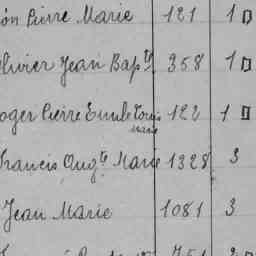 ón Pierre Marie 121 1
olivier Jean Bapte 358 1
oger Pierre Emile Louis 122 1
Marie
Francis Augte Marie 1328 3
Jean Marie 1081 3
751